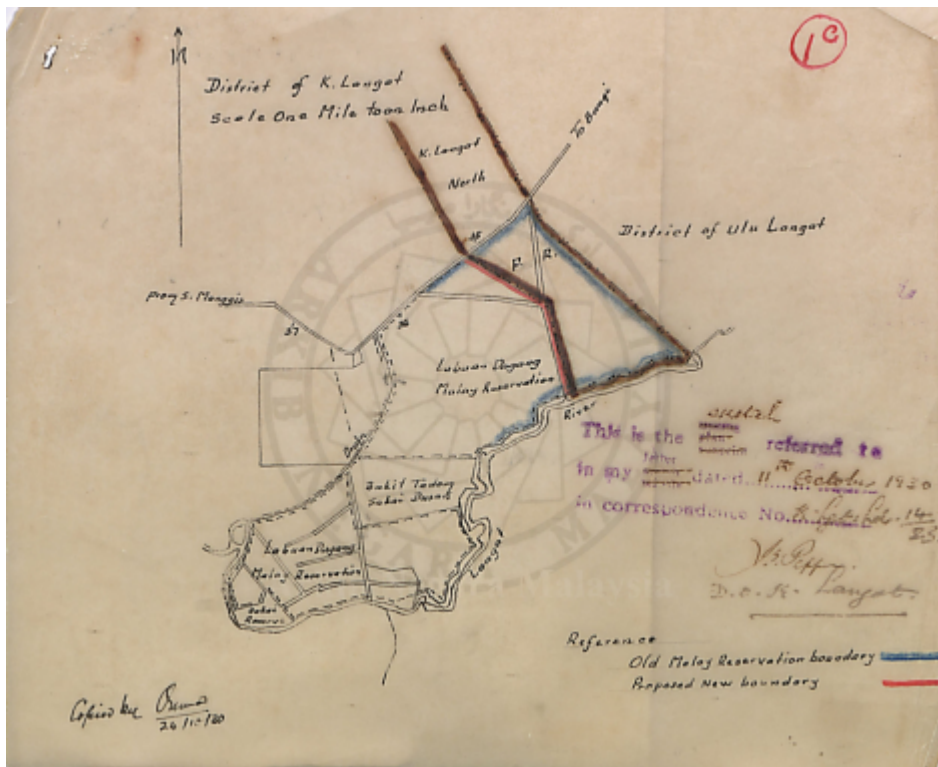 1c
N
District of K. Langat
Scale One Mile to an Inch
To Bangi
K. Langat
North
District of Ulu Langat
F. R.
From S. Manggis
37
36
Labuan Dagang
Malay Reservation
River
Langat
Bukit Tadom
Sakai
Labuan Dagang
Malay Reservation
Sakai
Reserve
This is the sketch referred to
in my letter dated 11th October 1930
in correspondence No.
D.O. K. Langat.
Reference
Old Malay Reservation boundary
Proposed New boundary
Copied by